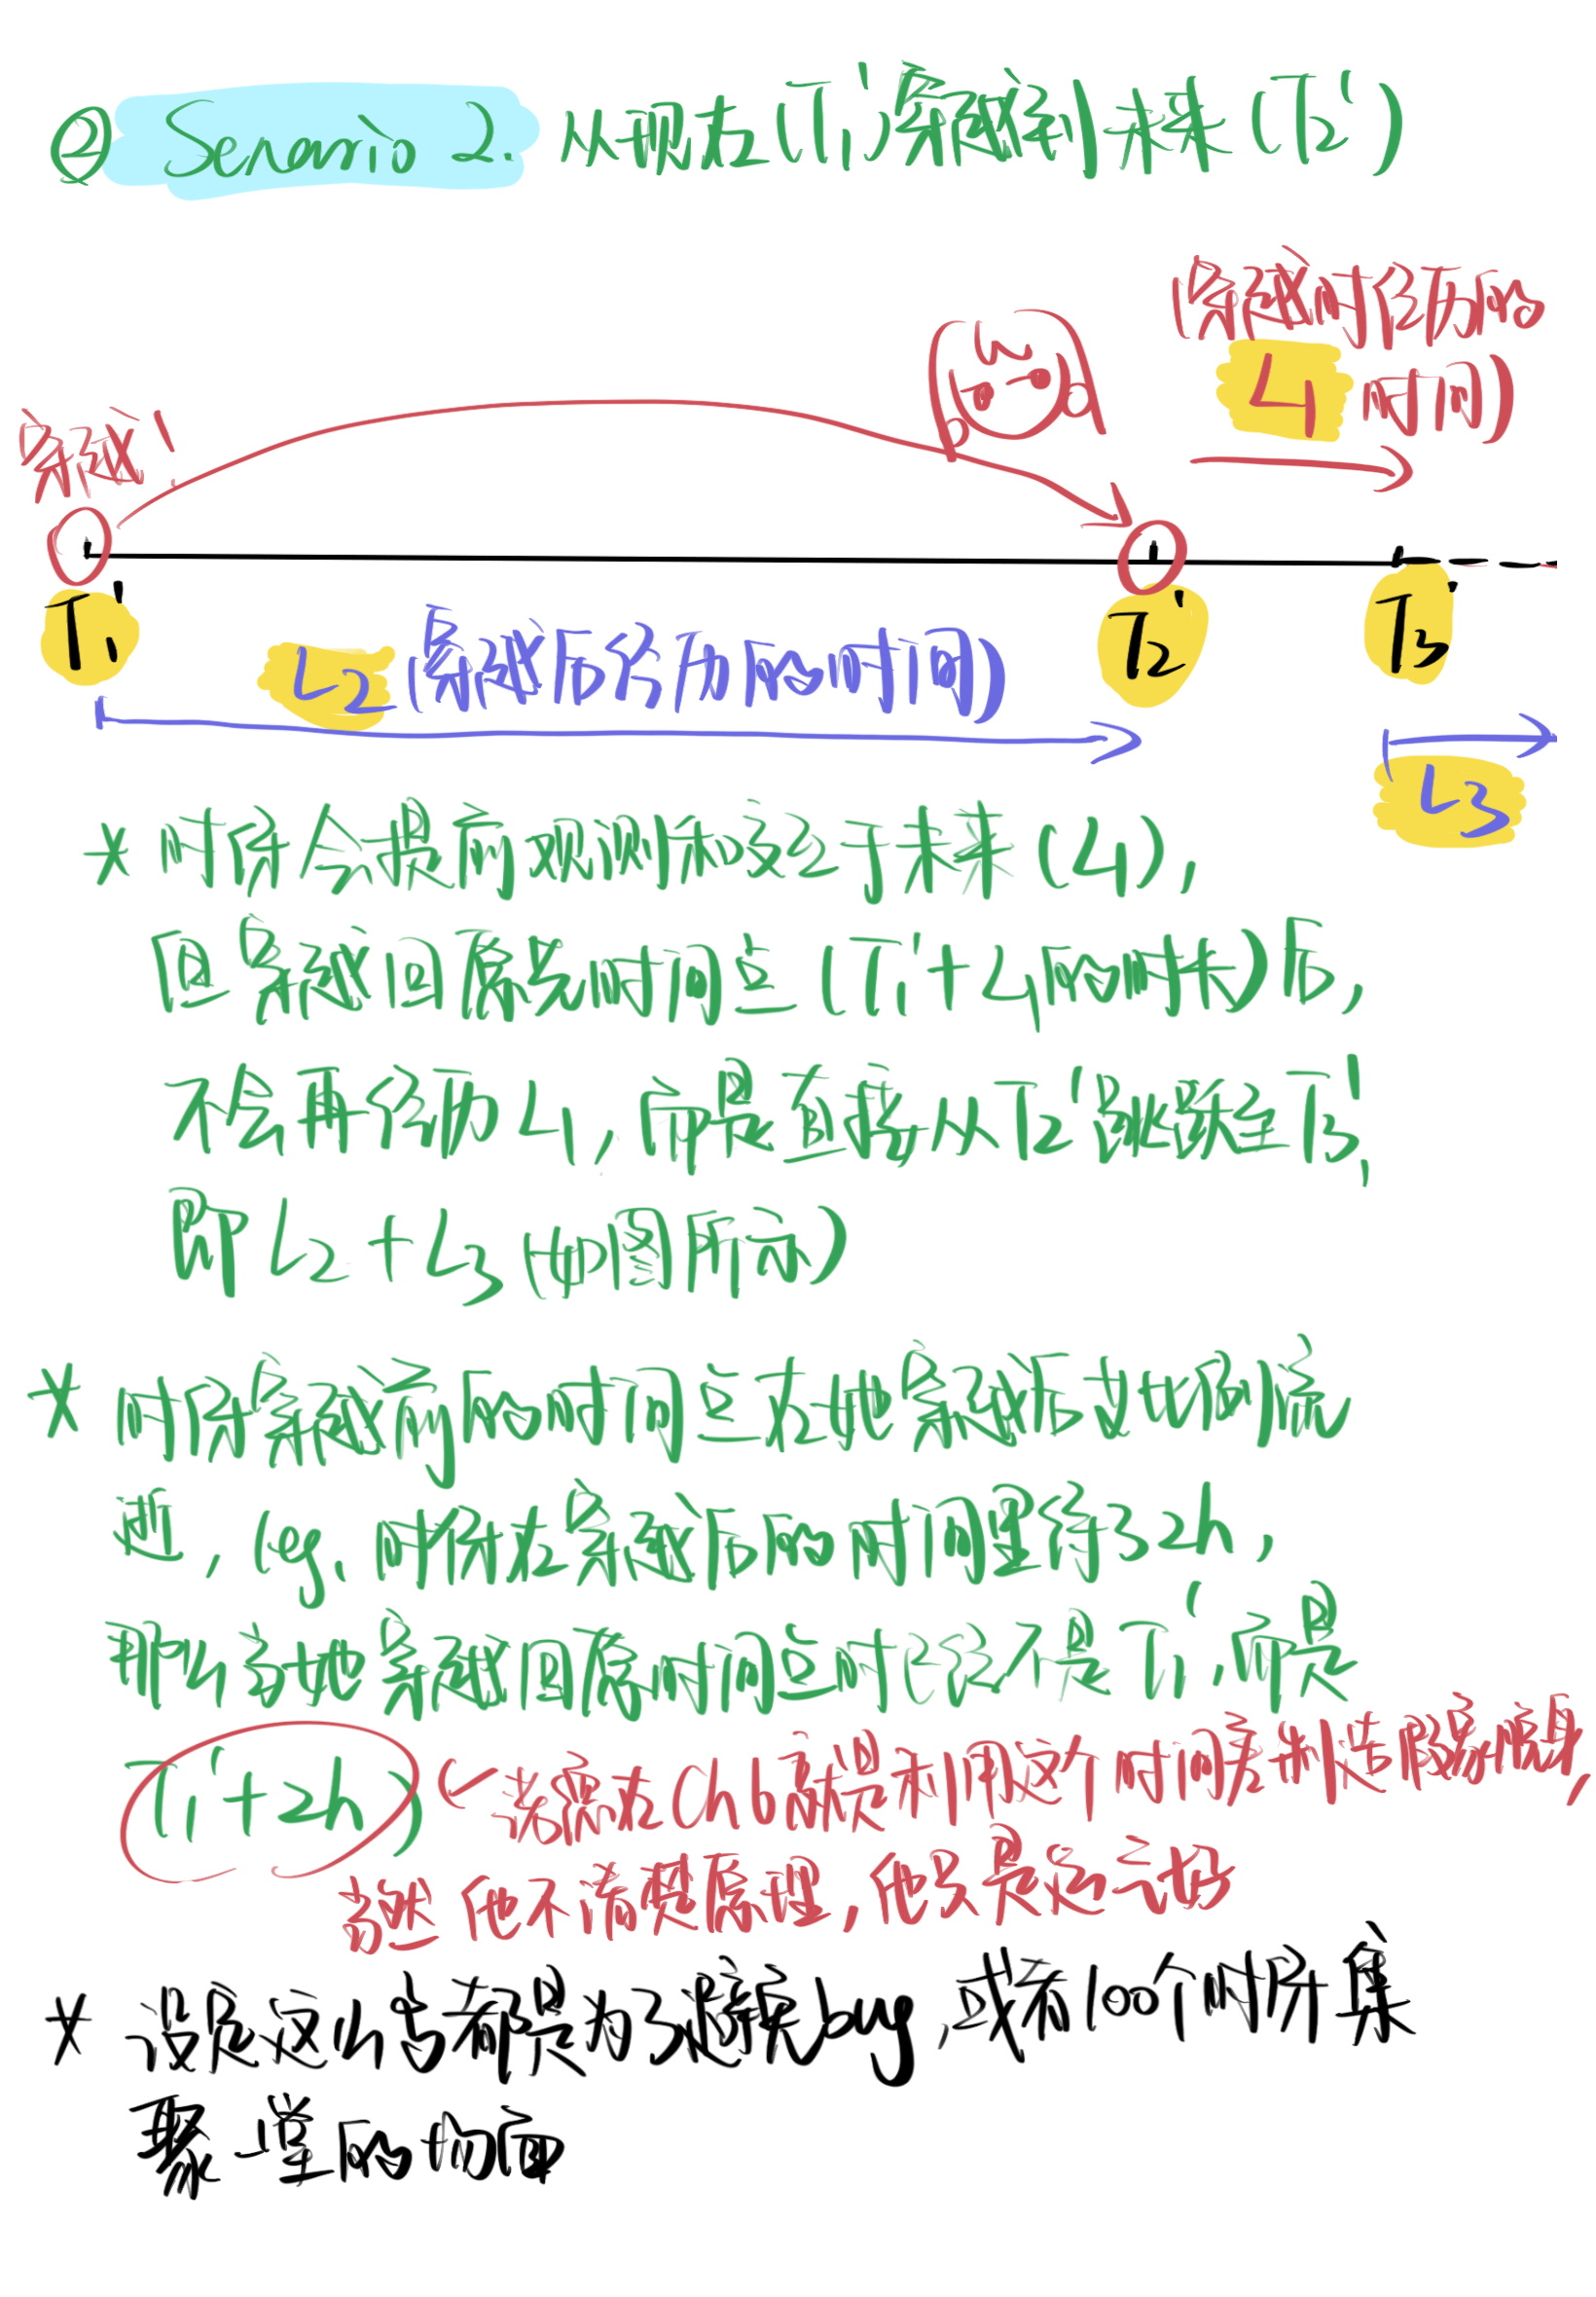 ② Senario 2. 从现在(T1')穿越到未来(T2')
(穿越时经历的
L1 时间)
穿越!
T1'
T2'
T3'
L2 (穿越后经历的时间)
L3
* 时停会提前观测和改变于未来(L1),
但穿越回原先时间点(T1'+L1的时长)后,
不会再经历L1,而是直接从T2'跳跃至T3',
即L2+L3(如图所示)
* 时停穿越前的时间点在她穿越后也比例流
逝,(eg.时停在穿越后的时间里待了2h,
那么当她穿越回原时间点时已经不是T1',而是
T1'+2h) (←诺源在Ch6就是利用这个时间差制造假象脱身,
当然他不清楚原理,他只是运气好
* 设定这么写都是为了避免bug,或有100个时停集
聚一堂的场面